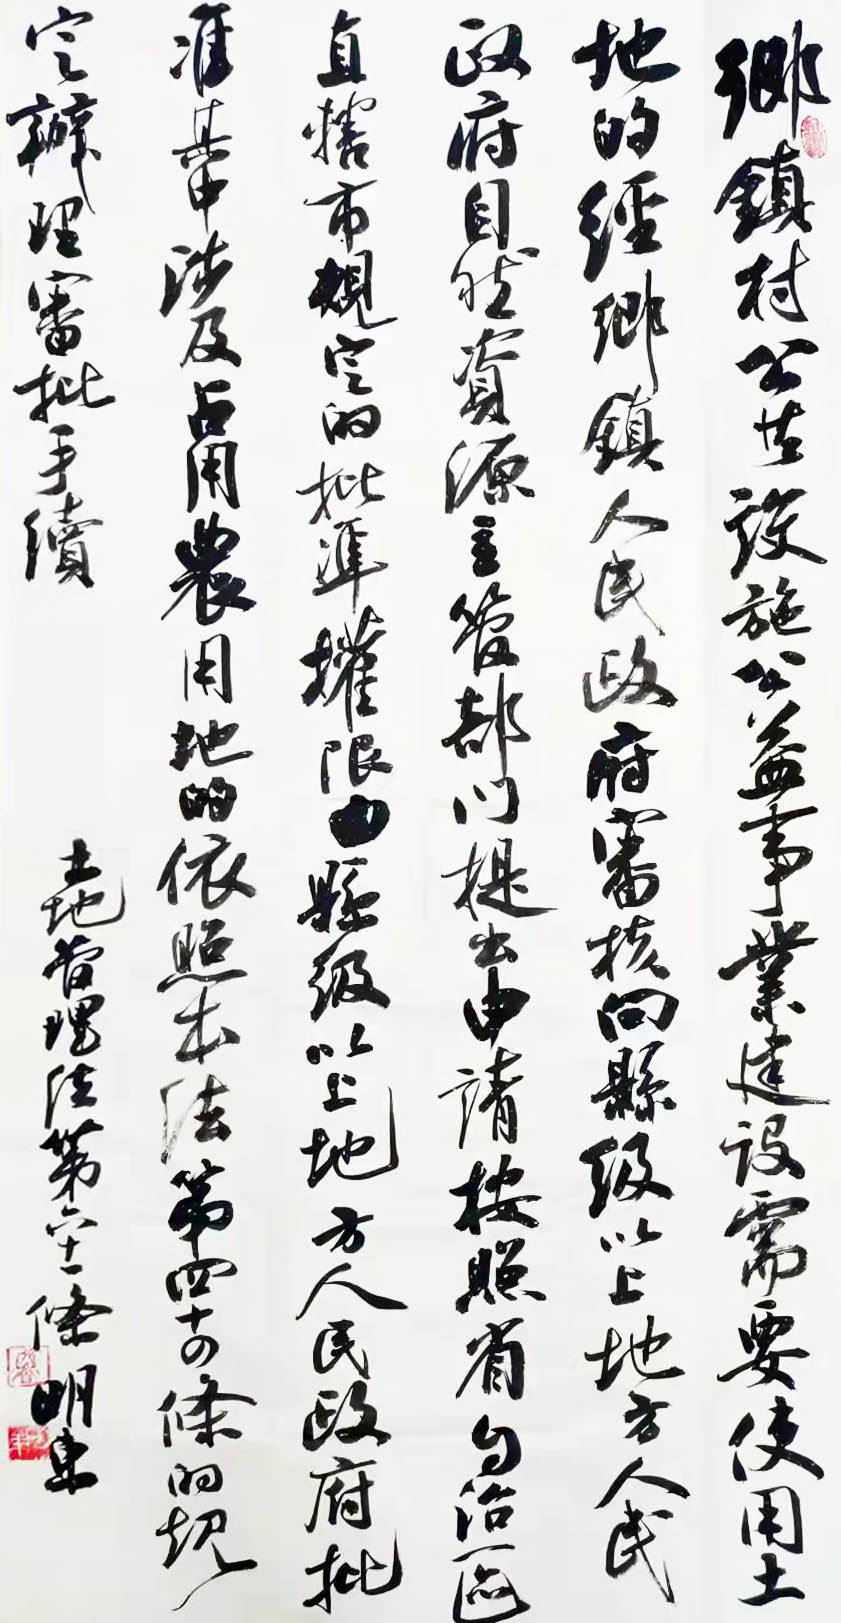 鄉鎮村公共設施公益事業建設需要使用土
地的經鄉鎮人民政府審核向縣級以上地方人民
政府自然資源主管部門提出申請按照省自治區
直轄市規定的批準權限由縣級以上地方人民政府批
準其中涉及占用農用地的依照本法第四十四條的規
定辦理審批手續
土地管理法第六十一條 明東